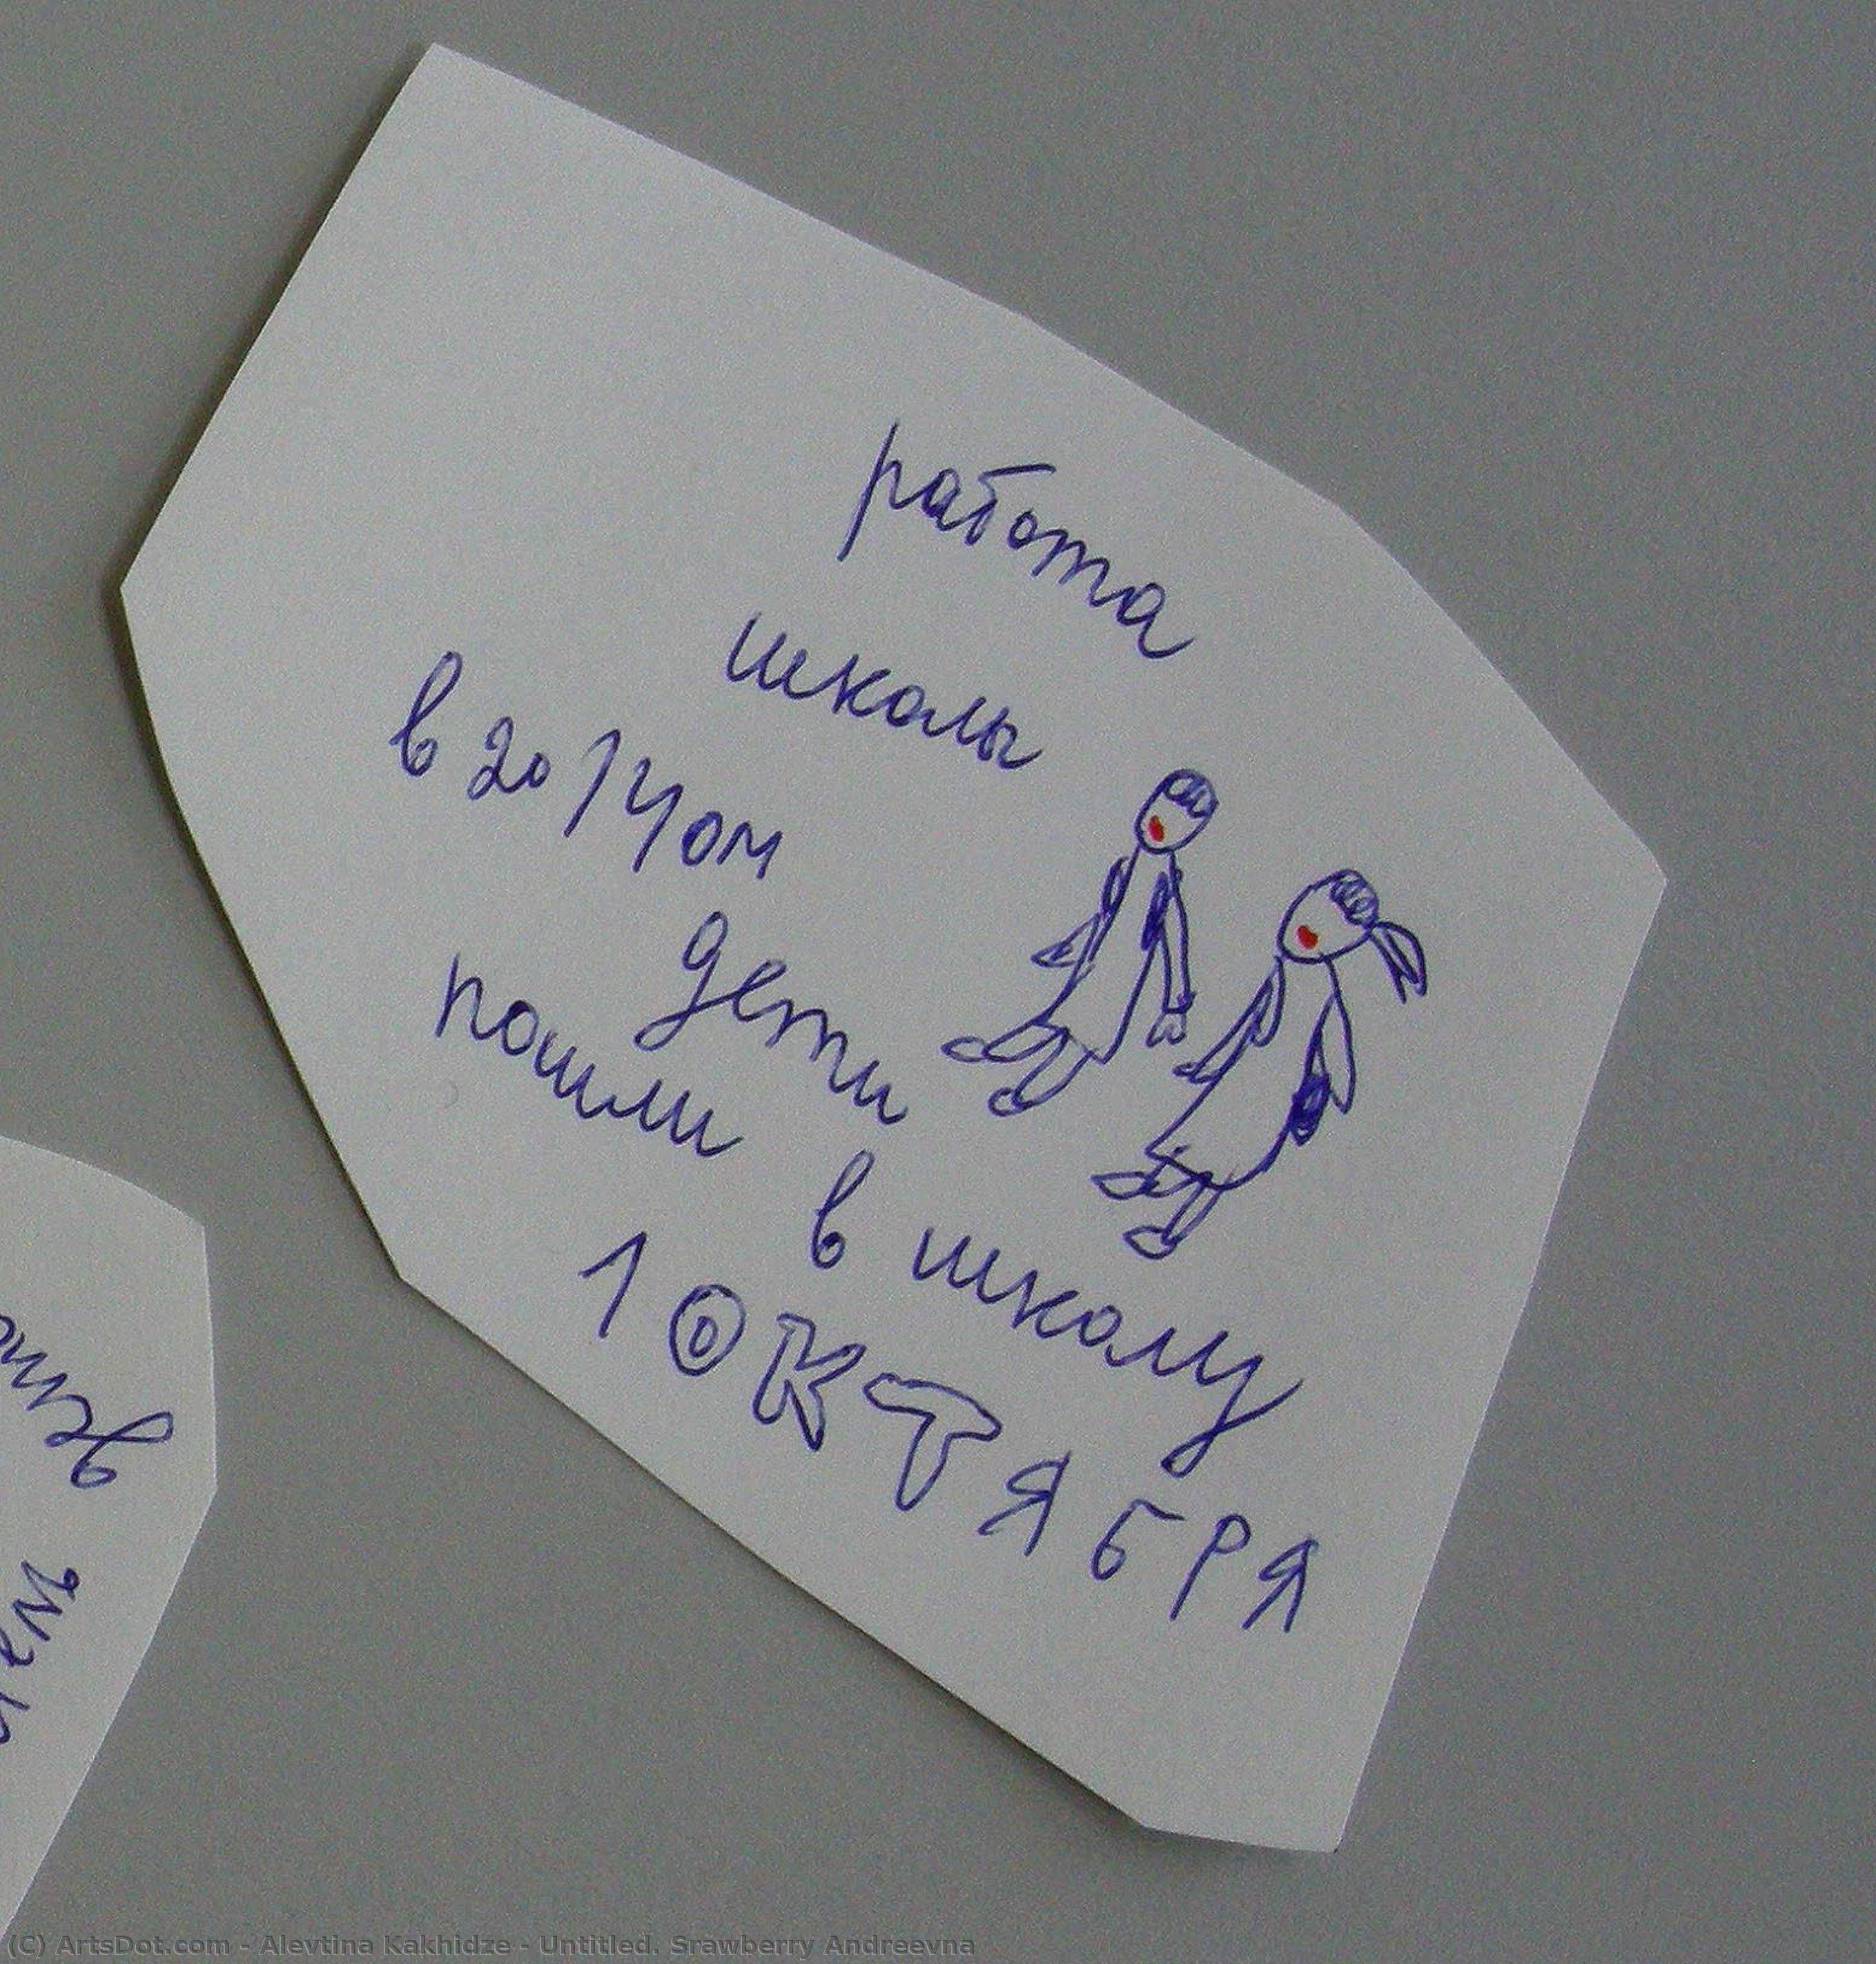 работа
школы
в 2014ом
дети
пошли в школу
1 ОКТЯБРЯ
(C) ArtsDot.com - Alevtina Kakhidze - Untitled. Srawberry Andreevna